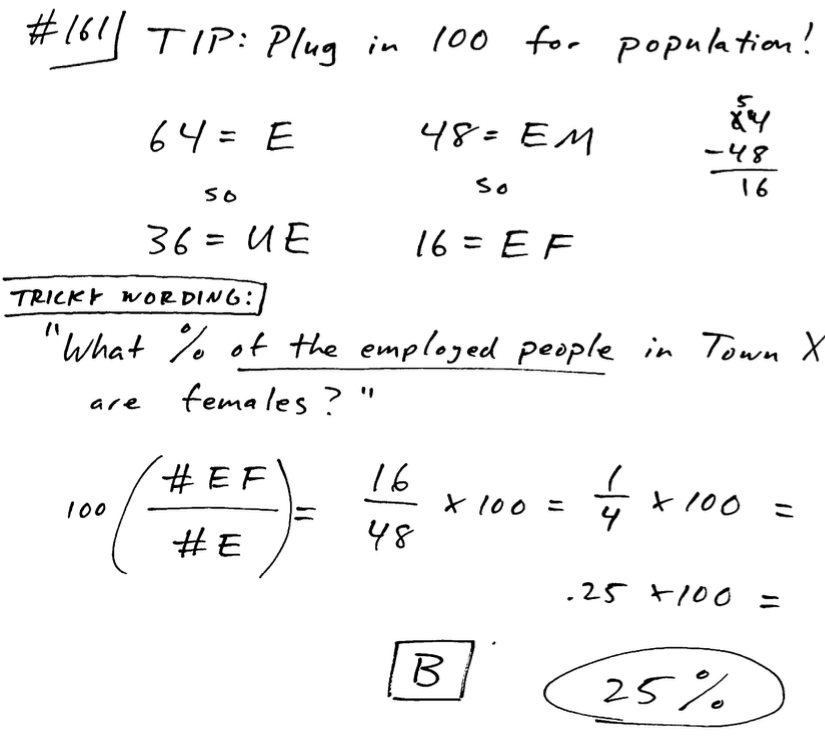 #161 TIP: Plug in 100 for population!
64 = E 48 = EM 5
64
-48
16
so so
36 = UE 16 = EF
TRICKY WORDING:
"What % of the employed people in Town X
are females?"
100 (#EF / #E) = 16/48 × 100 = 1/4 × 100 =
.25 × 100 =
B 25%